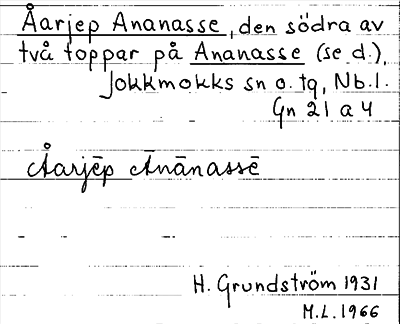 Åarjep Ananasse, den södra av
två toppar på Ananasse (se d.),
Jokkmokks sn o. tg, Nb. l.
Gn 21 a 4
Åarjēp Ānānassē
H. Grundström 1931
M.L. 1966